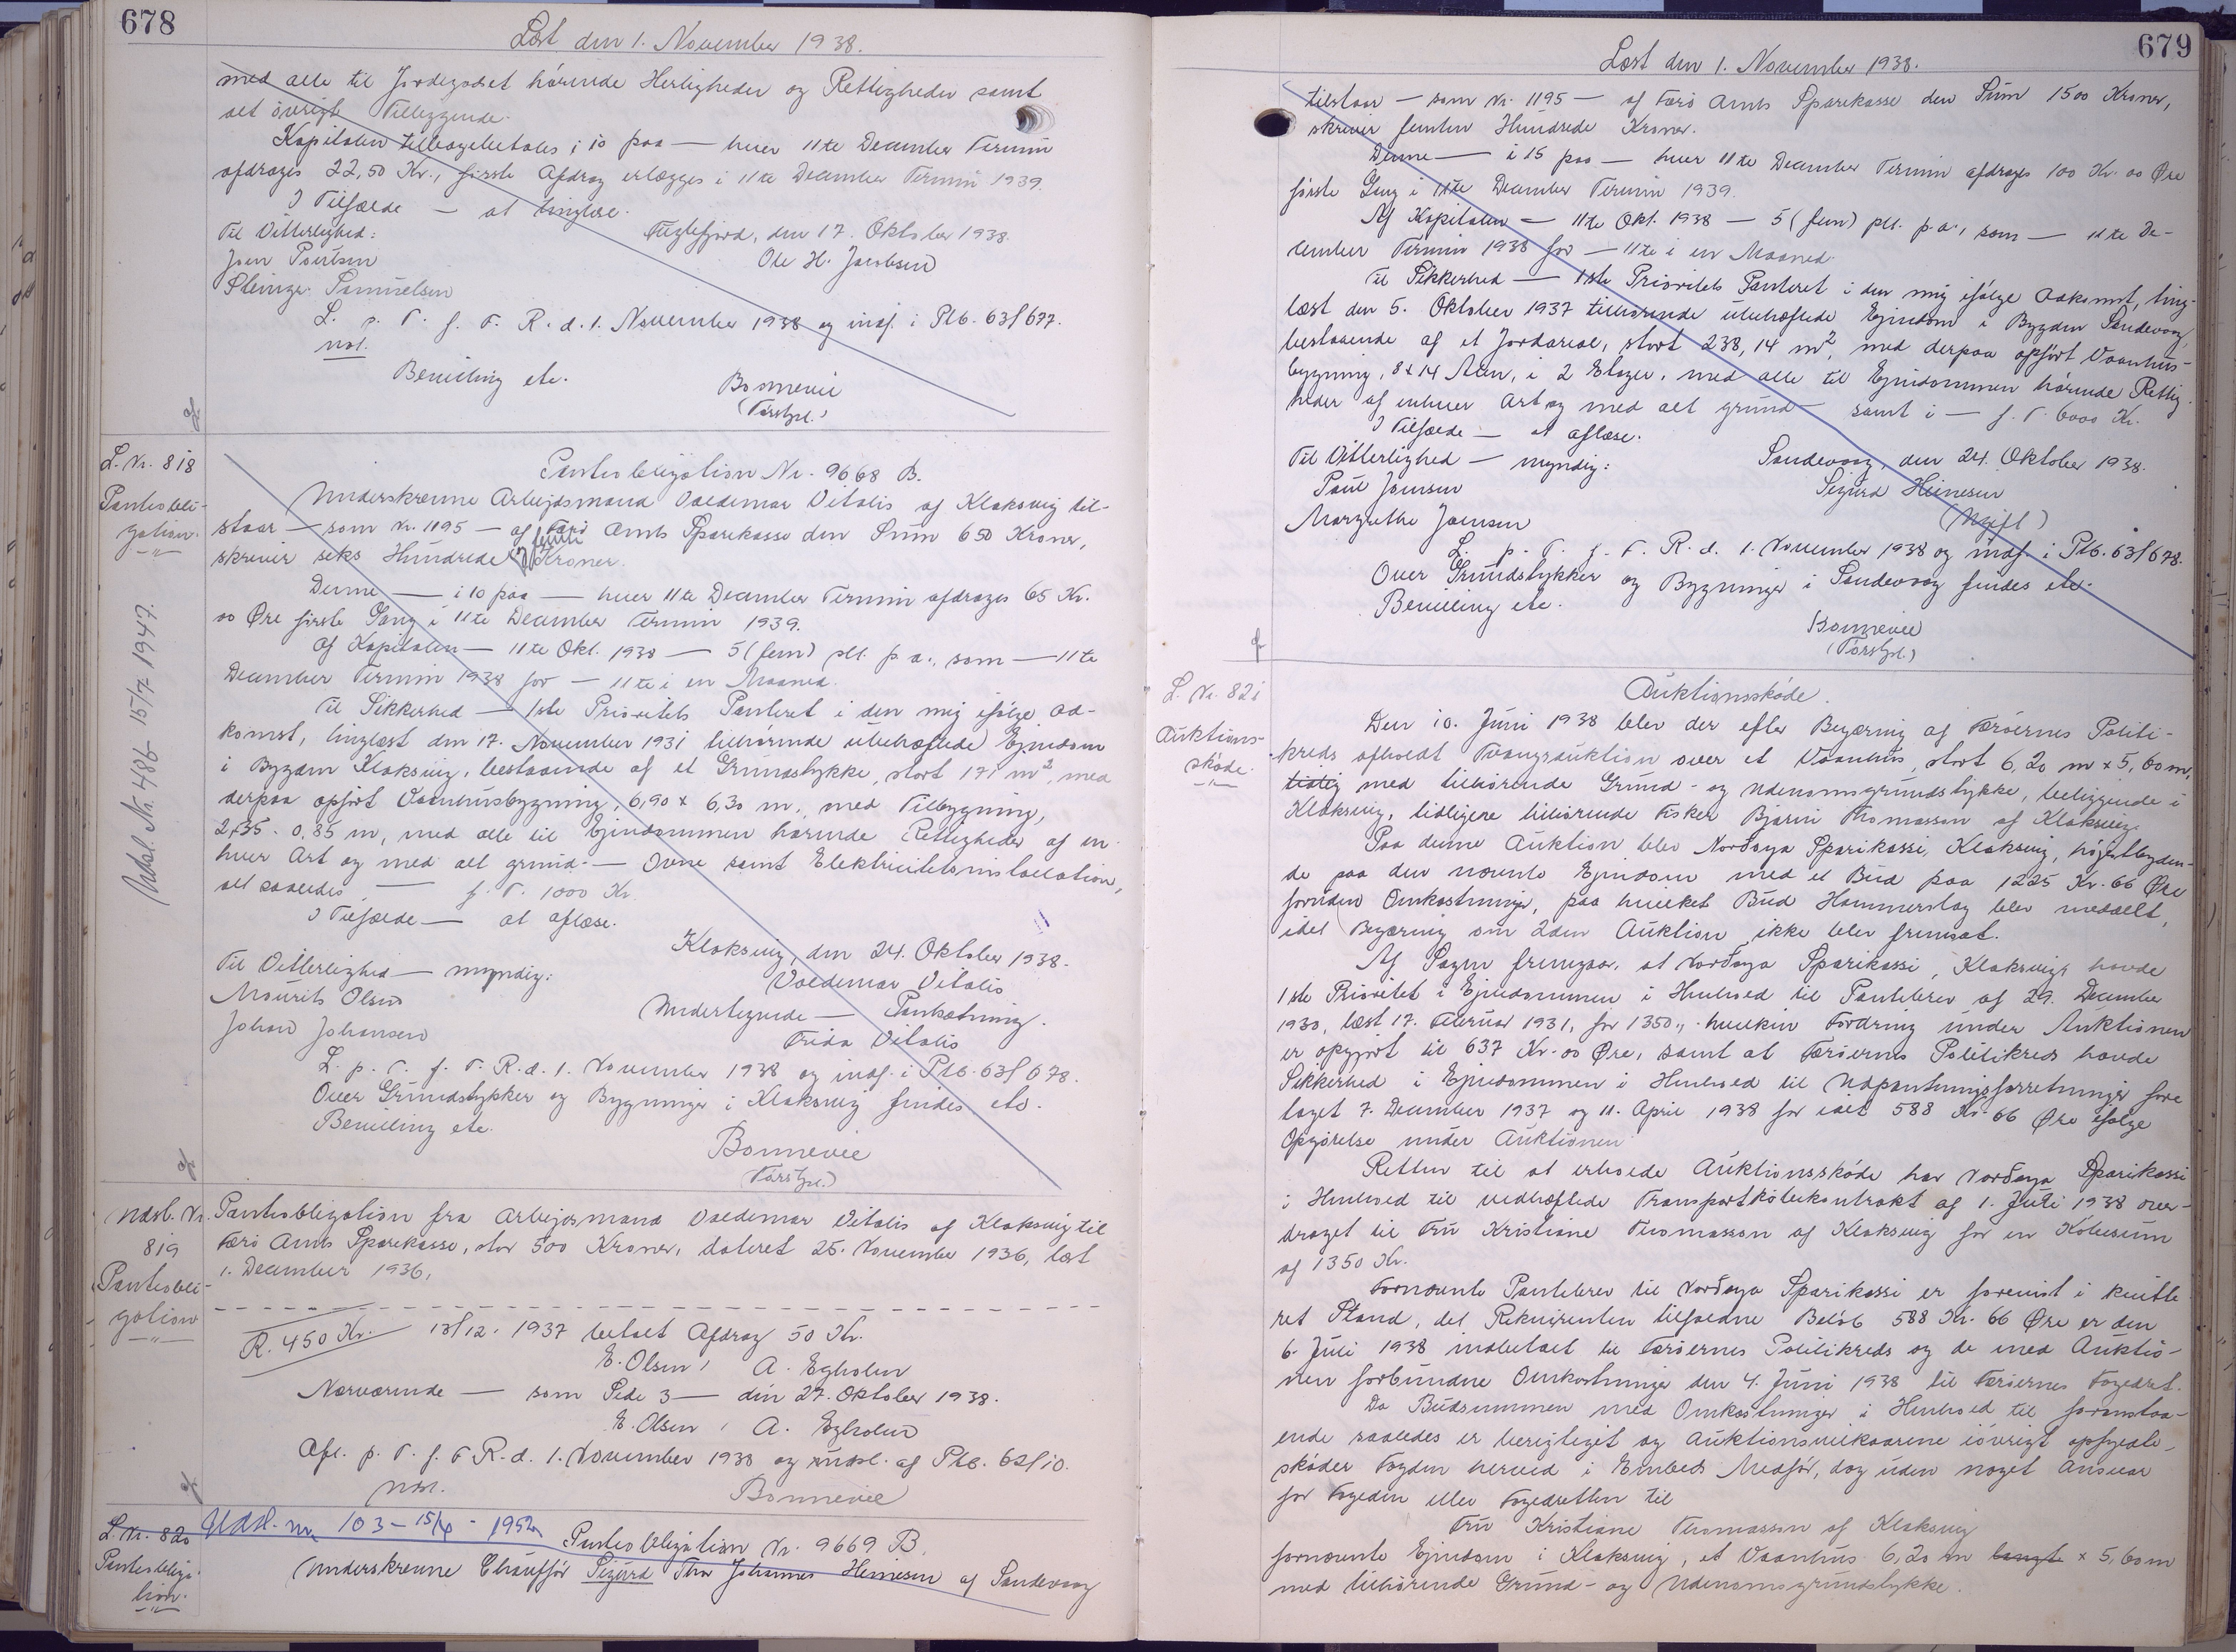 678
Læst den 1. November 1938.
med alle til Jordegodset hörende Herligheder og Rettigheder samt
alt övrigt Tilliggende.
Kapitalen tilbagebetales i 10 paa — hver 11te December Termin
afdrages 22,50 Kr., förste Afdrag erlægges i 11te December Termin 1939.
I Tilfælde — at tinglæse.
Fuglefjord, den 17. Oktober 1938.
Til Vitterlighed:
Ole H. Jacobsen
Joen Poulsen
Samuelsen
L. p. T. f. F. R. d. 1. November 1938 og indf. i Ptb. 63f 677.
not.
Bevilling etc.
Bonnevie
(Forstpl.)
L. Nr. 818
Pantobli-
gation.
Udsl. Nr. 486 - 15/7 1947.
Pantobligation Nr. 9668 B.
Underskrevne Arbejdsmand Valdemar Vitalis af Klaksvig til-
staar — som Nr. 1195 — af Færö Amts Sparekasse den Sum 650 Kroner,
skriver seks Hundrede og femti Kroner.
Denne — i 10 paa — hver 11te December Termin afdrages 65 Kr.
00 Øre förste Gang i 11te December Termin 1939.
Af Kapitalen — 11te Okt. 1938 — 5 (fem) pct. p. a., som — 11te
December Termin 1938 for — 11te i en Maaned.
Til Sikkerhed — 1ste Prioritets Panteret i den mig ifölge Ad-
komst, tinglæst den 17. November 1931 tilhörende ubehæftede Ejendom
i Bygden Klaksvig, bestaaende af et Grundstykke, stort 171 m², med
derpaa opfört Vaanhusbygning, 6,90 x 6,30 m, med Tilbygning,
2,35 · 0,85 m, med alle til Ejendommen hörende Rettigheder af en-
hver Art og med alt grund- — Ovne samt Elektricitetsinstallation,
alt saaledes — f. T. 1000 Kr.
I Tilfælde — at aflæse.
Klaksvig, den 24. Oktober 1938.
Til Vitterlighed — myndig:
Valdemar Vitalis
Maurits Olsen
Undertegnede — Pantsætning.
Johan Johansen
Frida Vitalis
L. p. T. f. F. R. d. 1. November 1938 og indf. i Ptb. 63f 678.
Over Grundstykker og Bygninger i Klaksvig findes etc.
Bevilling etc.
Bonnevie
(Forstpl.)
Udsl. Nr.
819
Pantobli-
gation
Pantobligation fra Arbejdsmand Valdemar Vitalis af Klaksvig til
Færö Amts Sparekasse, stor 500 Kroner, dateret 25. November 1936, læst
1. December 1936.
R. 450 Kr. 13/12. 1937 betalt Afdrag 50 Kr.
E. Olsen / A. Egholm
Nærværende — som Side 3 — den 27. Oktober 1938.
E. Olsen / A. Egholm
Afl. p. T. f. F. R. d. 1. November 1938 og udsl. af Ptb. 62f 10.
not.
Bonnevie
L. Nr. 820
Pantobliga-
tion.
Udsl. nr. 103 - 15/4 - 1952
Pantobligation Nr. 9669 B.
Underskrevne Chaufför Sigurd Thor Johannes Heinesen af Sandevaag
679
Læst den 1. November 1938.
tilstaar — som Nr. 1195 — af Færö Amts Sparekasse den Sum 1500 Kroner,
skriver femten Hundrede Kroner.
Denne — i 15 paa — hver 11te December Termin afdrages 100 Kr. 00 Øre
förste Gang i 11te December Termin 1939.
Af Kapitalen — 11te Okt. 1938 — 5 (fem) pct. p. a., som — 11te De-
cember Termin 1938 for — 11te i en Maaned.
Til Sikkerhed — 1ste Prioritets Panteret i den mig ifölge Adkomst, ting-
læst den 5. Oktober 1937 tilhörende ubehæftede Ejendom i Bygden Sandevaag,
bestaaende af et Jordareal, stort 238,14 m², med derpaa opfört Vaanhus-
bygning, 8 x 14 Alen, i 2 Etager, med alle til Ejendommen hörende Rettig-
heder af enhver Art og med alt grund — samt i — f. T. 6000 Kr.
I Tilfælde — at aflæse.
Til Vitterlighed — myndig:
Sandevaag, den 24. Oktober 1938.
Poul Joensen
Sigurd Heinesen
Margrethe Joensen
(Ugift)
L. p. T. f. F. R. d. 1. November 1938 og indf. i Ptb. 63f 678.
Over Grundstykker og Bygninger i Sandevaag findes etc.
Bevilling etc.
Bonnevie
(Forstpl.)
L. Nr. 821
Auktions-
sköde.
Auktionssköde.
Den 10. Juni 1938 blev der efter Begæring af Færöernes Politi-
kreds afholdt Tvangsauktion over et Vaanhus, stort 6,20 m x 5,60 m,
tidlig med tilhörende Grund- og Udenomsgrundstykke, beliggende i
Klaksvig, tidligere tilhörende Fisker Bjarni Thomasson af Klaksvig.
Paa denne Auktion blev Norðoya Sparikassi, Klaksvig, höjestbyden-
de paa den nævnte Ejendom med et Bud paa 1225 Kr. 66 Øre
foruden Omkostninger, paa hvilket Bud Hammerslag blev meddelt,
idet Begæring om 2den Auktion ikke blev fremsat.
Af Sagen fremgaar, at Norðoya Sparikassi, Klaksvig, havde
1ste Prioritet i Ejendommen i Henhold til Pantebrev af 29. December
1930, læst 17. Februar 1931, for 1350,-, hvilken Fordring under Auktionen
er opgjort til 637 Kr. 00 Øre, samt at Færöernes Politikreds havde
Sikkerhed i Ejendommen i Henhold til Udpantningsforretninger fore-
taget 7. December 1937 og 11. April 1938 for ialt 588 Kr. 66 Øre ifölge
Opgörelse under Auktionen.
Retten til at erholde Auktionssköde har Norðoya Sparikassi
i Henhold til vedhæftede Transportköbekontrakt af 1. Juli 1938 over-
draget til Fru Kristiane Thomasson af Klaksvig for en Köbesum
af 1350 Kr.
Fornævnte Pantebrev til Norðoya Sparikassi er forevist i kvitte-
ret Stand, det Rekvirenten tilfaldne Belöb 588 Kr. 66 Øre er den
6. Juli 1938 indbetalt til Færöernes Politikreds og de med Auktio-
nen forbundne Omkostninger den 4. Juni 1938 til Færöernes Fogedret.
Da Budsummen med Omkostninger i Henhold til foranstaa-
ende saaledes er berigtiget og Auktionsvilkaarene iövrigt opfyldt,
sköder Fogden herved i Embeds Medför, dog uden noget Ansvar
for Fogeden eller Fogedretten til
Fru Kristiane Thomasson af Klaksvig
fornævnte Ejendom i Klaksvig, et Vaanhus 6,20 m langt x 5,60 m
med tilhörende Grund- og Udenomsgrundstykke.